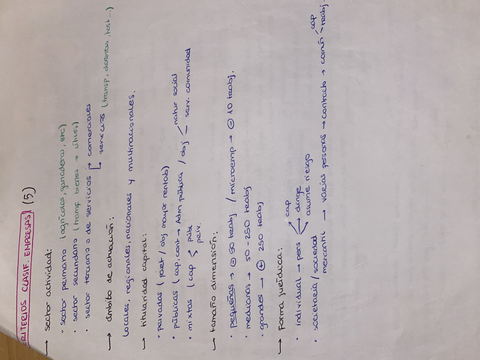 CRITERIOS CLASIF. EMPRESAS (5)
→ sector actividad:
· sector primario (agrícolas, ganaderas, etc)
· sector secundario (transf. bienes → útiles)
· sector terciario o de servicios → comerciales
→ servicios (transp, docentes, host...)
→ ámbito de actuación:
Locales, regionales, nacionales y multinacionales.
→ titularidad capital:
· privadas (part / obj mayor rentab)
· públicas (cap, cont → Adm pública / obj natur social
serv. comunidad
· mixtas (cap púb
priv.
→ tamaño dimensión:
· pequeñas → ⊖ 50 trabj / microemp → ⊖ 10 trabj.
· medianas → 50-250 trabj.
· grandes → ⊕ 250 trabj
→ Forma jurídica:
· individual → pers cap
dirige
asume riesgo
· societaria / sociedad
mercantil → varias personas → contrato → común cap
trabj.